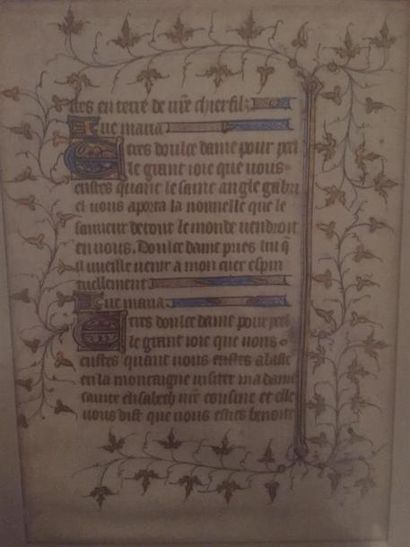 tres en terre de vre chier filz
Aue maria
Tres doulce dame pour cel
le grant ioie que vous
eustes quant le saint angle gabri
el vous aporta la nouuelle que le
sauueur de tout le monde vendroit
en vous. Doulce dame pries lui q
il vueille venir a mon cuer espiri
tuellement
Aue maria
Tres doulce dame pour cel
le grant ioie que vous
eustes quant vous enstes
en la montaigne visiter ma dame
sainte elisabeth vre cousine et elle
vous dist que vous esties benoite